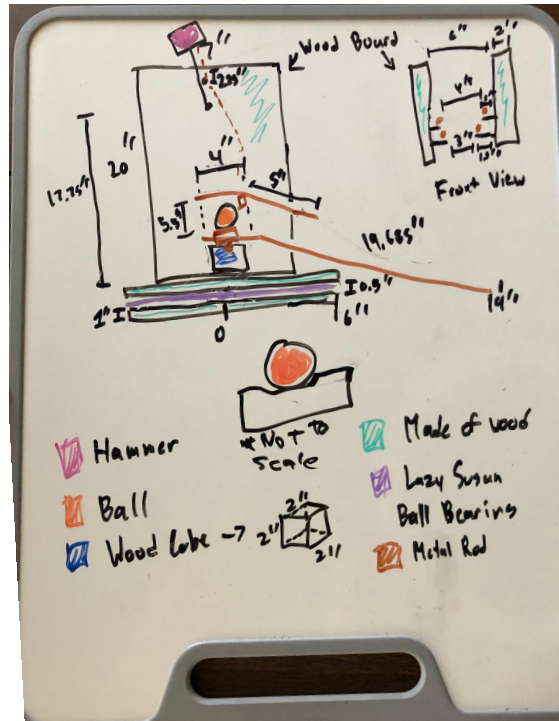 1"
Wood Board
6"
2"
4"
3"
Front View
20"
17.75"
4"
5"
5.5"
19.685"
19"
0.5"
1"
6"
0
* Not to
Scale
Hammer
Ball
Wood Cube → 2" 2" 2"
Made of wood
Lazy Susun
Ball Bearing
Metal Rod